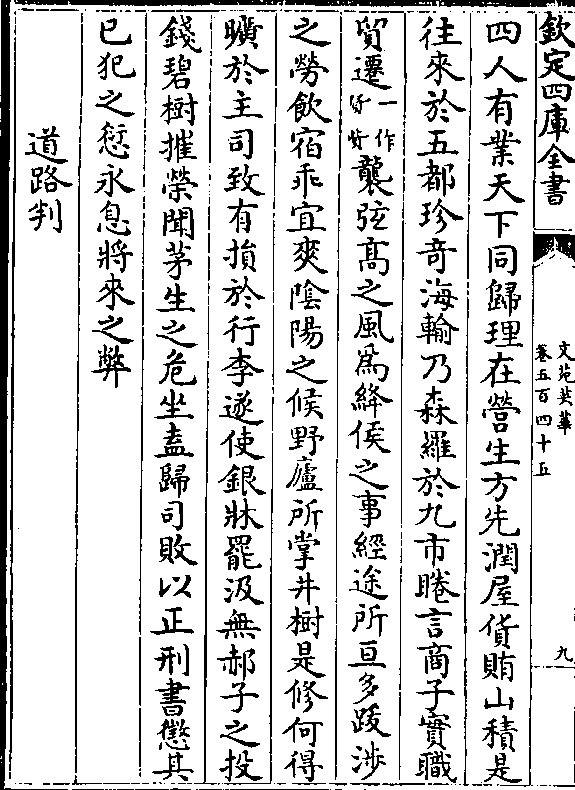 欽定四庫全書
文苑英華
卷五百四十五
九
四人有業天下同歸理在營生方先潤屋貨賄山積是
往來於五都珍竒海輸乃森羅於九市睠言商子實職
貿遷一作㢡㢡襲弦髙之風為絳侯之事經途所亘多跋涉
之勞飲宿乖宜爽隂陽之候野廬所掌井樹是修何得
曠於主司致有損於行李遂使銀牀罷汲無郝子之投
錢碧樹摧榮聞茅生之危坐盍歸司敗以正刑書懲其
已犯之愆永息將來之弊
道路判